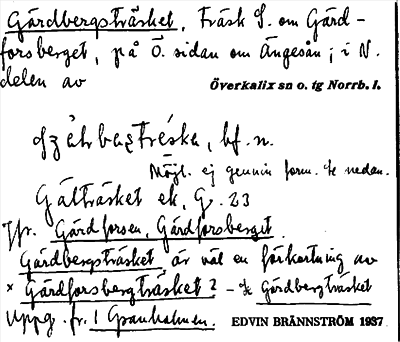 Gårdbergsträsket, Träsk S. om Gård-
forsberget, på Ö. sidan om Ängesån; i N.
delen av Överkalix sn o. tg Norrb. l.
bf. n.
Möjl. ej genuin form. Se nedan.
Gålträsket ek. G. 23
Jfr. Gårdforsen, Gårdforsberget.
Gårdbergsträsket är väl en förkortning av
* Gårdforsbergträsket 2 - Se Gårdbergträsket
Uppg. fr. 1 Granholmen. EDVIN BRÄNNSTRÖM 1937